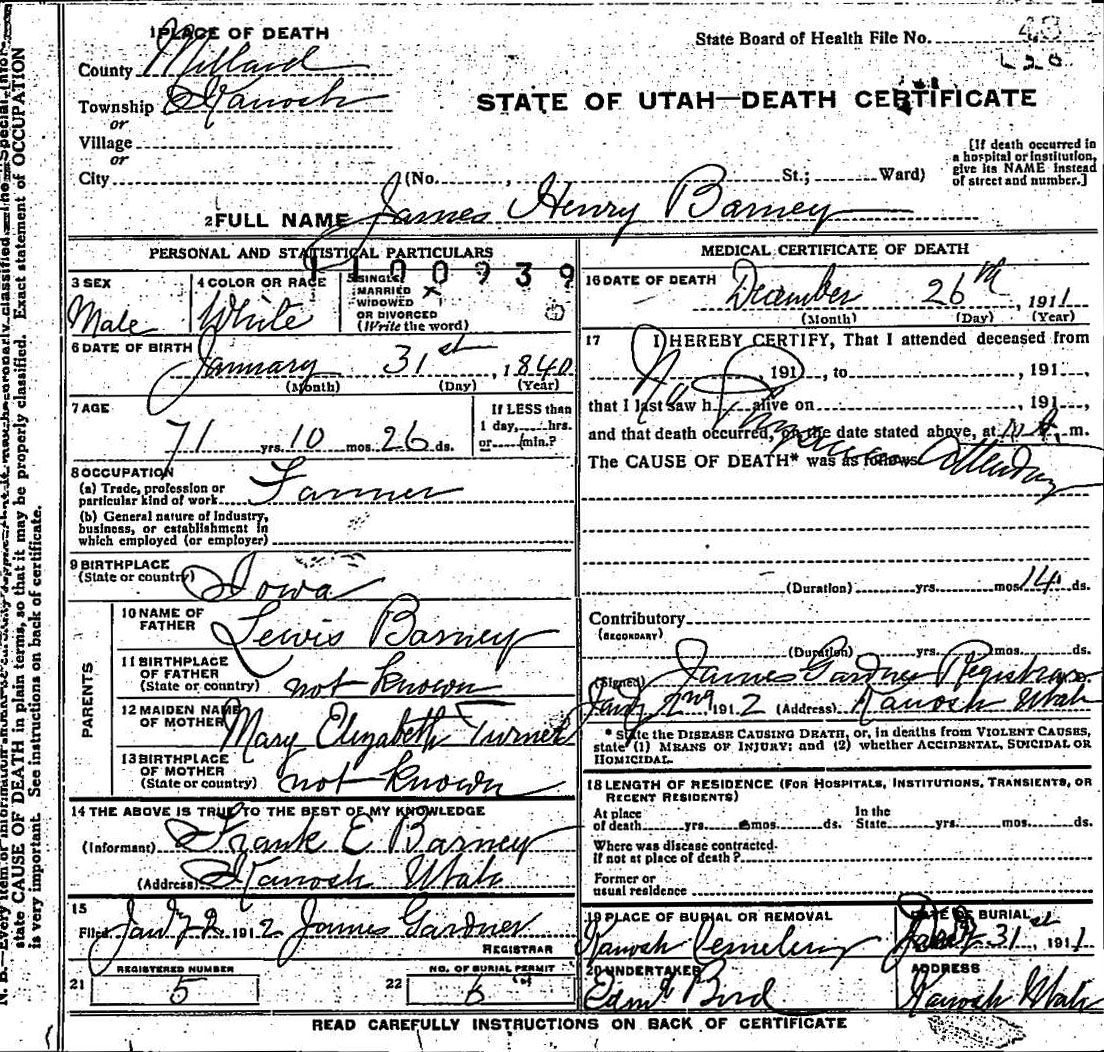 1 PLACE OF DEATH
County Millard
Township Kanosh
or
Village
or
City (No. , St.; Ward)
State Board of Health File No. 43
STATE OF UTAH—DEATH CERTIFICATE
[If death occurred in
a hospital or institution,
give its NAME instead
of street and number.]
2 FULL NAME James Henry Barney
PERSONAL AND STATISTICAL PARTICULARS
1100939
3 SEX
Male
4 COLOR OR RACE
White
5 SINGLE
MARRIED X
WIDOWED
OR DIVORCED
(Write the word)
6 DATE OF BIRTH
January 31st, 1840
(Month) (Day) (Year)
7 AGE
71 yrs. 10 mos. 26 ds.
If LESS than
1 day, hrs.
or min.?
8 OCCUPATION
(a) Trade, profession or
particular kind of work Farmer
(b) General nature of industry,
business, or establishment in
which employed (or employer)
9 BIRTHPLACE
(State or country) Iowa
PARENTS
10 NAME OF
FATHER Lewis Barney
11 BIRTHPLACE
OF FATHER
(State or country) not known
12 MAIDEN NAME
OF MOTHER Mary Elizabeth Turner
13 BIRTHPLACE
OF MOTHER
(State or country) not known
14 THE ABOVE IS TRUE TO THE BEST OF MY KNOWLEDGE
(Informant) Frank E Barney
(Address) Kanosh Utah
15
Filed Jany 2 1912 James Gardner
REGISTRAR
21 REGISTERED NUMBER
5
22 NO. OF BURIAL PERMIT
6
MEDICAL CERTIFICATE OF DEATH
16 DATE OF DEATH
December 26th, 1911
(Month) (Day) (Year)
17 I HEREBY CERTIFY, That I attended deceased from
, 191 , to , 191 ,
that I last saw h alive on , 191 ,
and that death occurred, on the date stated above, at m.
The CAUSE OF DEATH* was as follows
No Attending
(Duration) yrs. mos. 14 ds.
Contributory
(SECONDARY)
(Duration) yrs. mos. ds.
(Signed) James Gardner Registrar
Jany 2nd 1912 (Address) Kanosh Utah
* State the DISEASE CAUSING DEATH, or, in deaths from VIOLENT CAUSES,
state (1) MEANS OF INJURY; and (2) whether ACCIDENTAL, SUICIDAL OR
HOMICIDAL.
18 LENGTH OF RESIDENCE (FOR HOSPITALS, INSTITUTIONS, TRANSIENTS, OR
RECENT RESIDENTS)
At place
of death yrs. mos. ds.
In the
State yrs. mos. ds.
Where was disease contracted
if not at place of death?
Former or
usual residence
19 PLACE OF BURIAL OR REMOVAL
Kanosh Cemetery
DATE OF BURIAL
31st, 1911
20 UNDERTAKER
Bird
ADDRESS
Kanosh Utah
READ CAREFULLY INSTRUCTIONS ON BACK OF CERTIFICATE
state CAUSE OF DEATH in plain terms, so that it may be properly classified. Exact statement of OCCUPATION
is very important. See instructions on back of certificate.